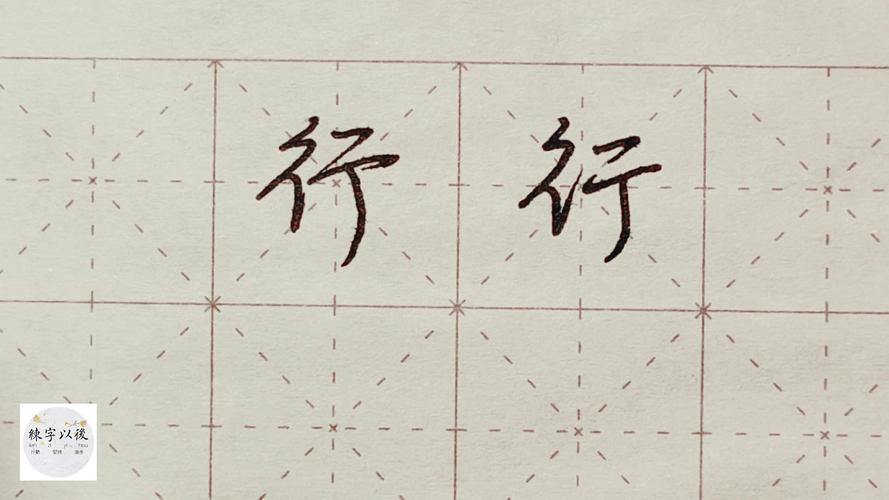 行 行
練字以後